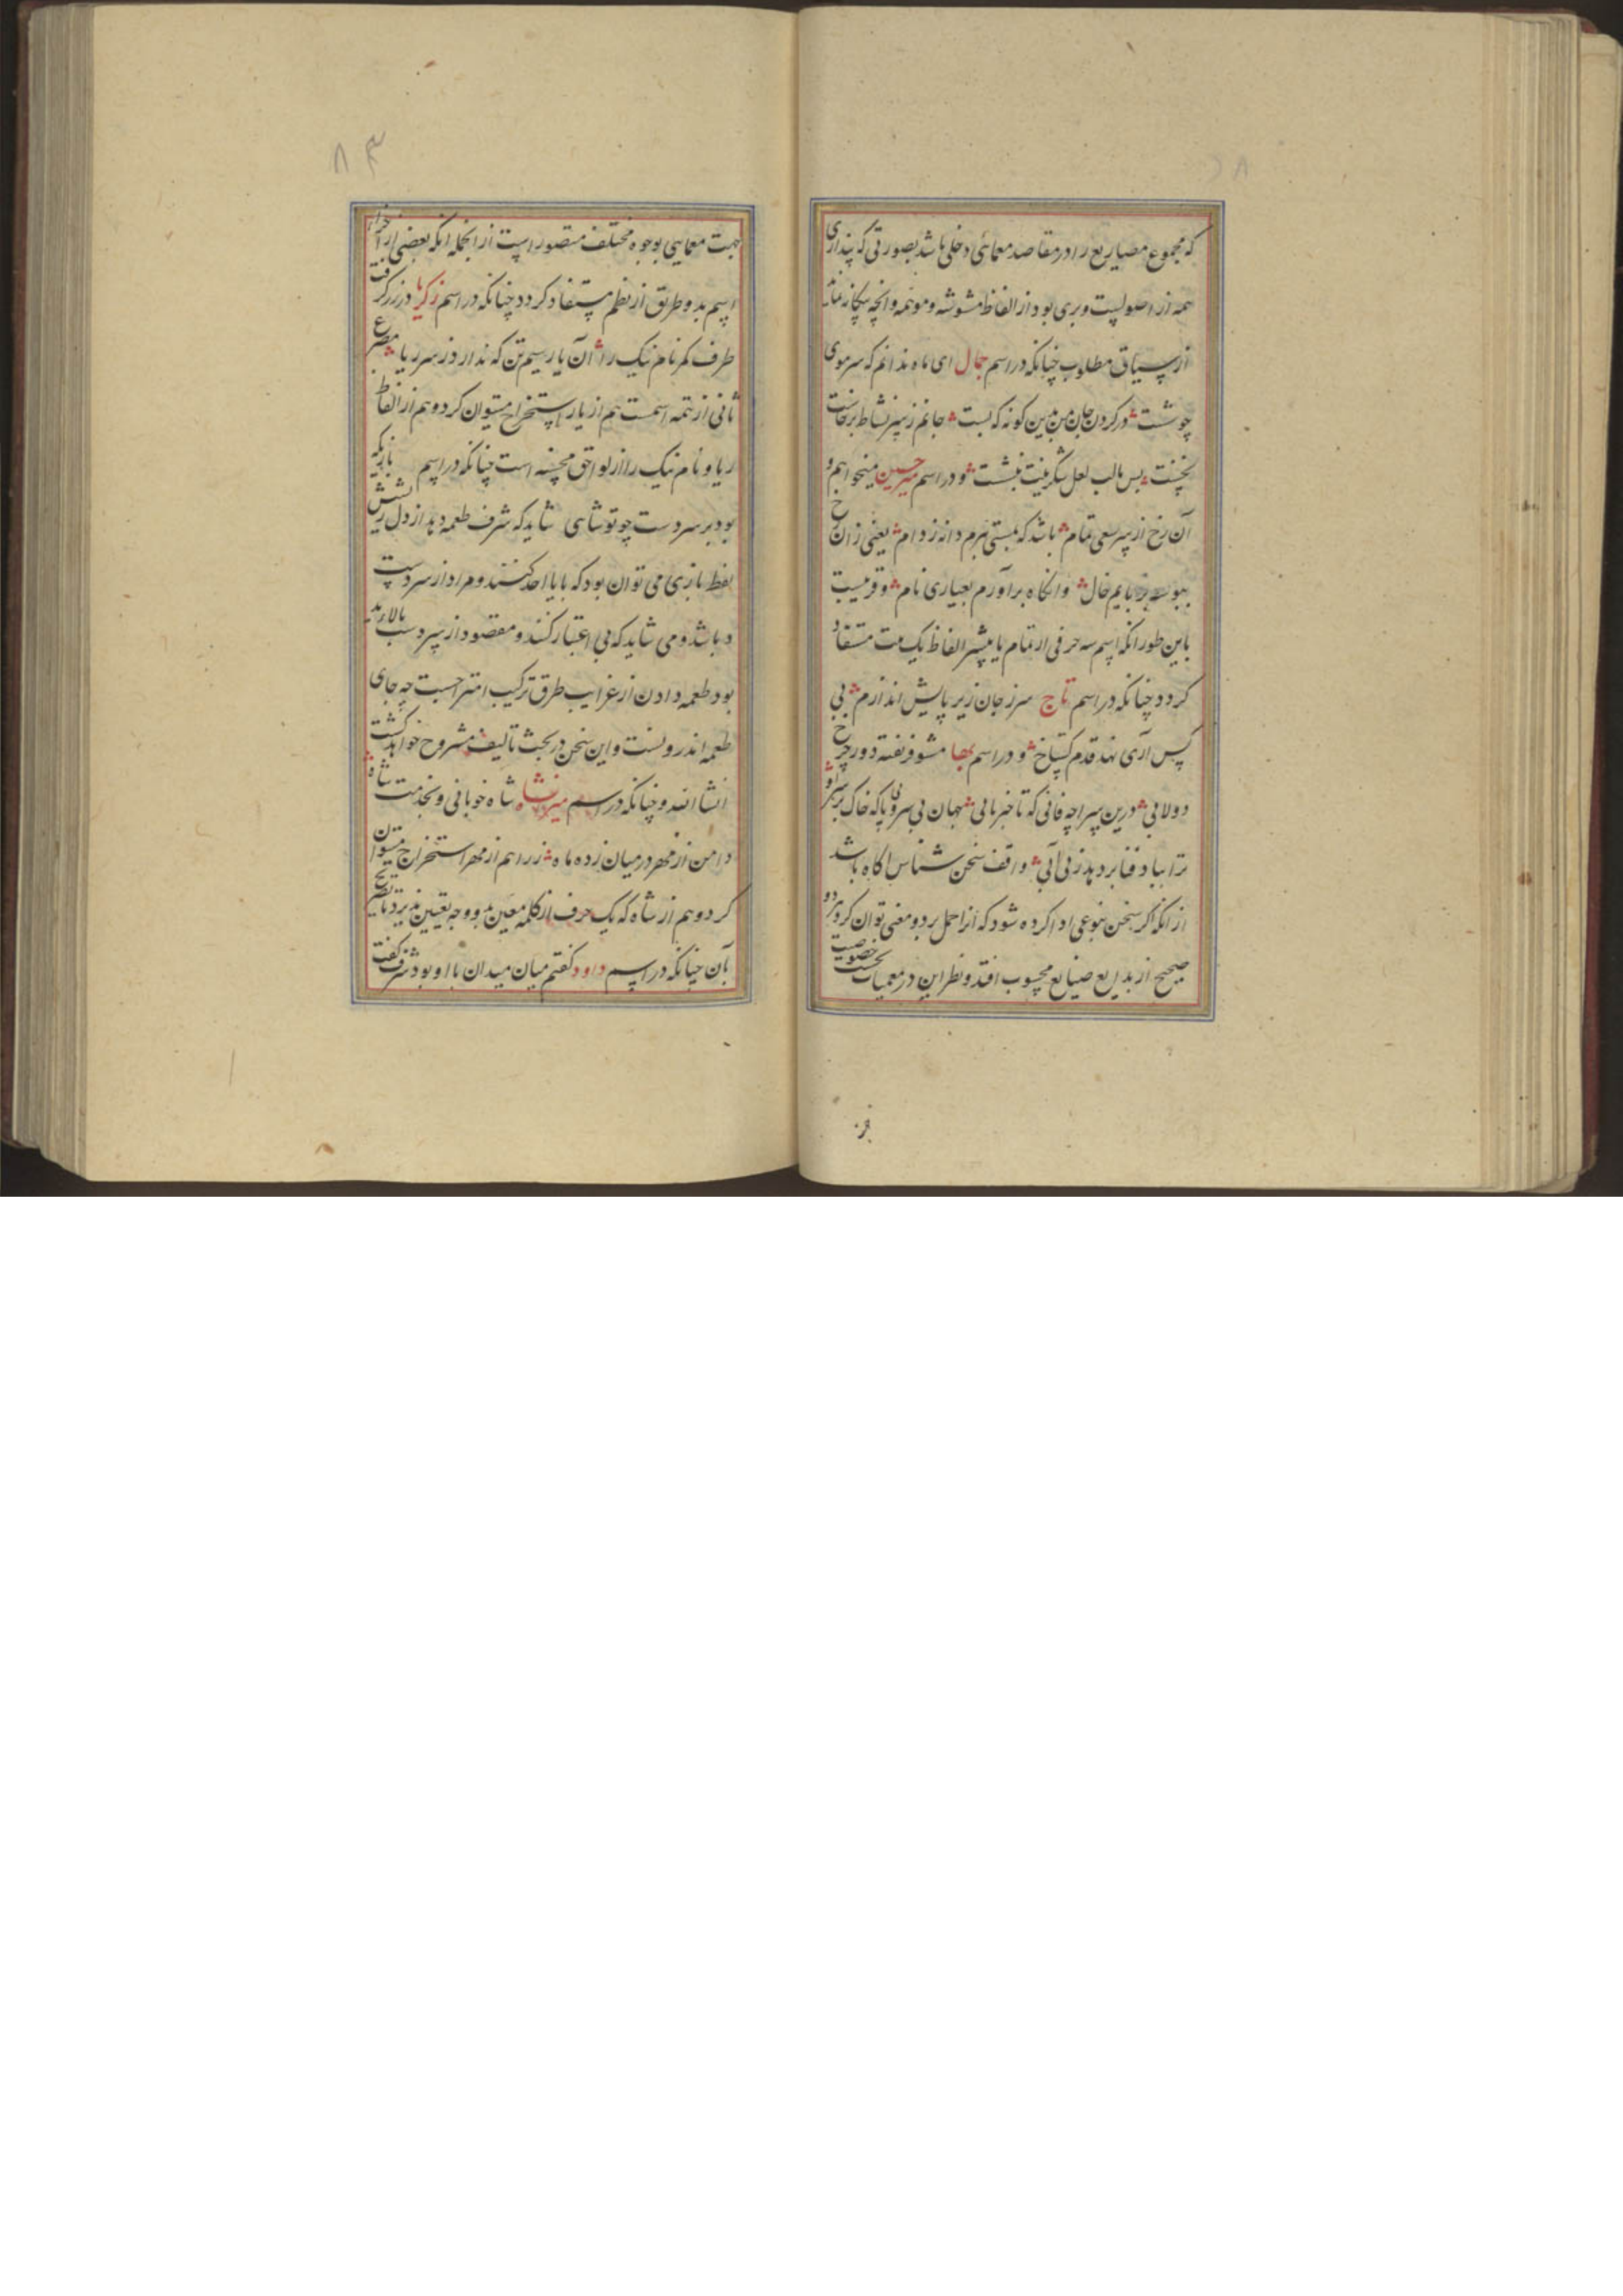 که مجموع مصاریع را در مقاصد معمائی دخلی باشد بصورتی که پنداری
همه از اصولیست و بری بود از الفاظ مشوشه و موهمه و انچه بیکانه نماید
از سیاق مطلوب چنانکه در اسم جمال ای ماه ندانم که سر موی
چو شست در کردن جان من بدین کونه که بست جانم ز سر نشاط برخاست
نخست پس با لب لعل شکرینت بنشست و در اسم میر حسین میخواهم و
آن رخ از سر سعی تمام باشد که بستی برم دانه ز دام یعنی زان رخ
ببوسه بربایم خال وانکاه برآورم بعیاری نام و قریبست
باین طور انکه اسم سه حرفی از تمام یا بیشتر الفاظ یک بیت مستفاد
کردد چنانکه در اسم تاج سر ز جان زیر پایش اندازم بی
پس آری نهد قدم کستاخ و در اسم بها مشو فریفته دور چرخ
دولابی درین سراچه فانی که تا خبر یابی جهان بی سر و پا که خاک بر سر او
ترا بباد فنا بر دهد ز بی آبی واقف سخن شناس اکاه باشد
از انکه اکر سخن بنوعی ادا کرده شود که انرا حمل بر دو معنی توان کرد هر دو
صحیح از بدایع صنایع محسوب افتد و نظر این در معمیات بحسب خصوصیت
۸۳
جهت معمایی بوجوه مختلف متصور است از انجمله انکه بعضی از اجزاء
اسم بدو طریق از نظم مستفاد کردد چنانکه در اسم زکریا در زر کرفت
طرف کمر نام نیک را آن یار سیم تن که ندارد ز سر ریا مصرع
ثانی از تتمه اسمست هم از یار استخراج میتوان کرد و هم از الفاظ
ریا و نام نیک را از لواحق محسنه است چنانکه در اسم بایزید
بود بر سر دست چو تو شاهی شاید که شرف طعمه دهد از دل ریشش
لفظ بازی می توان بود که با یا احذ کنند و مراد از سر دست
د باشد و می شاید که بی اعتبار کنند و مقصود از سر دست بالاء ید
بود طعمه دادن از غرایب طرق ترکیب امتزاجست چه جای
طعمه اندرونست و این سخن در بحث تألیف مشروح خواهد کشت
انشا الله و چنانکه در اسم میرنشاه شاه خوبانی و بخدمت شاه
دامن از مهر در میان زده ماه زر را هم از مهر استخراج میتوان
کرد و هم از شاه که یک حرف از کلمه معین بدو وجه تعیین پذیرد با تصریح
بآن چنانکه در اسم داود کفتم میان میدان با او بود شرف کفت